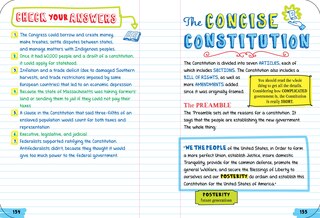 CHECK YOUR ANSWERS
1. The Congress could borrow and create money,
make treaties, settle disputes between states,
and manage matters with Indigenous peoples.
2. Once it had 60,000 people and a draft of a constitution,
it could apply for statehood.
3. Inflation and a trade deficit (due to damaged Southern
harvests, and trade restrictions imposed by some
European countries) that led to an economic depression
4. Because the state of Massachusetts was taxing farmers'
land or sending them to jail if they could not pay their
taxes
5. A clause in the Constitution that said three-fifths of an
enslaved population would count for both taxes and
representation
6. Executive, legislative, and judicial
7. Federalists supported ratifying the Constitution;
Antifederalists didn't, because they thought it would
give too much power to the federal government.
154
The CONCISE
CONSTITUTION
The Constitution is divided into seven ARTICLES, each of
which includes SECTIONS. The Constitution also includes a
BILL OF RIGHTS, as well as
more AMENDMENTS added
since it was originally framed.
You should read the whole
thing to get all the details.
Considering how COMPLICATED
government is, the Constitution
is really SHORT.
The PREAMBLE
The Preamble sets out the reasons for a constitution. It
says that the people are establishing the new government.
The whole thing:
"WE THE PEOPLE of the United States, in Order to form
a more perfect Union, establish Justice, insure domestic
Tranquility, provide for the common defence, promote the
general Welfare, and secure the Blessings of Liberty to
ourselves and our POSTERITY, do ordain and establish this
Constitution for the United States of America."
POSTERITY
future generations
155